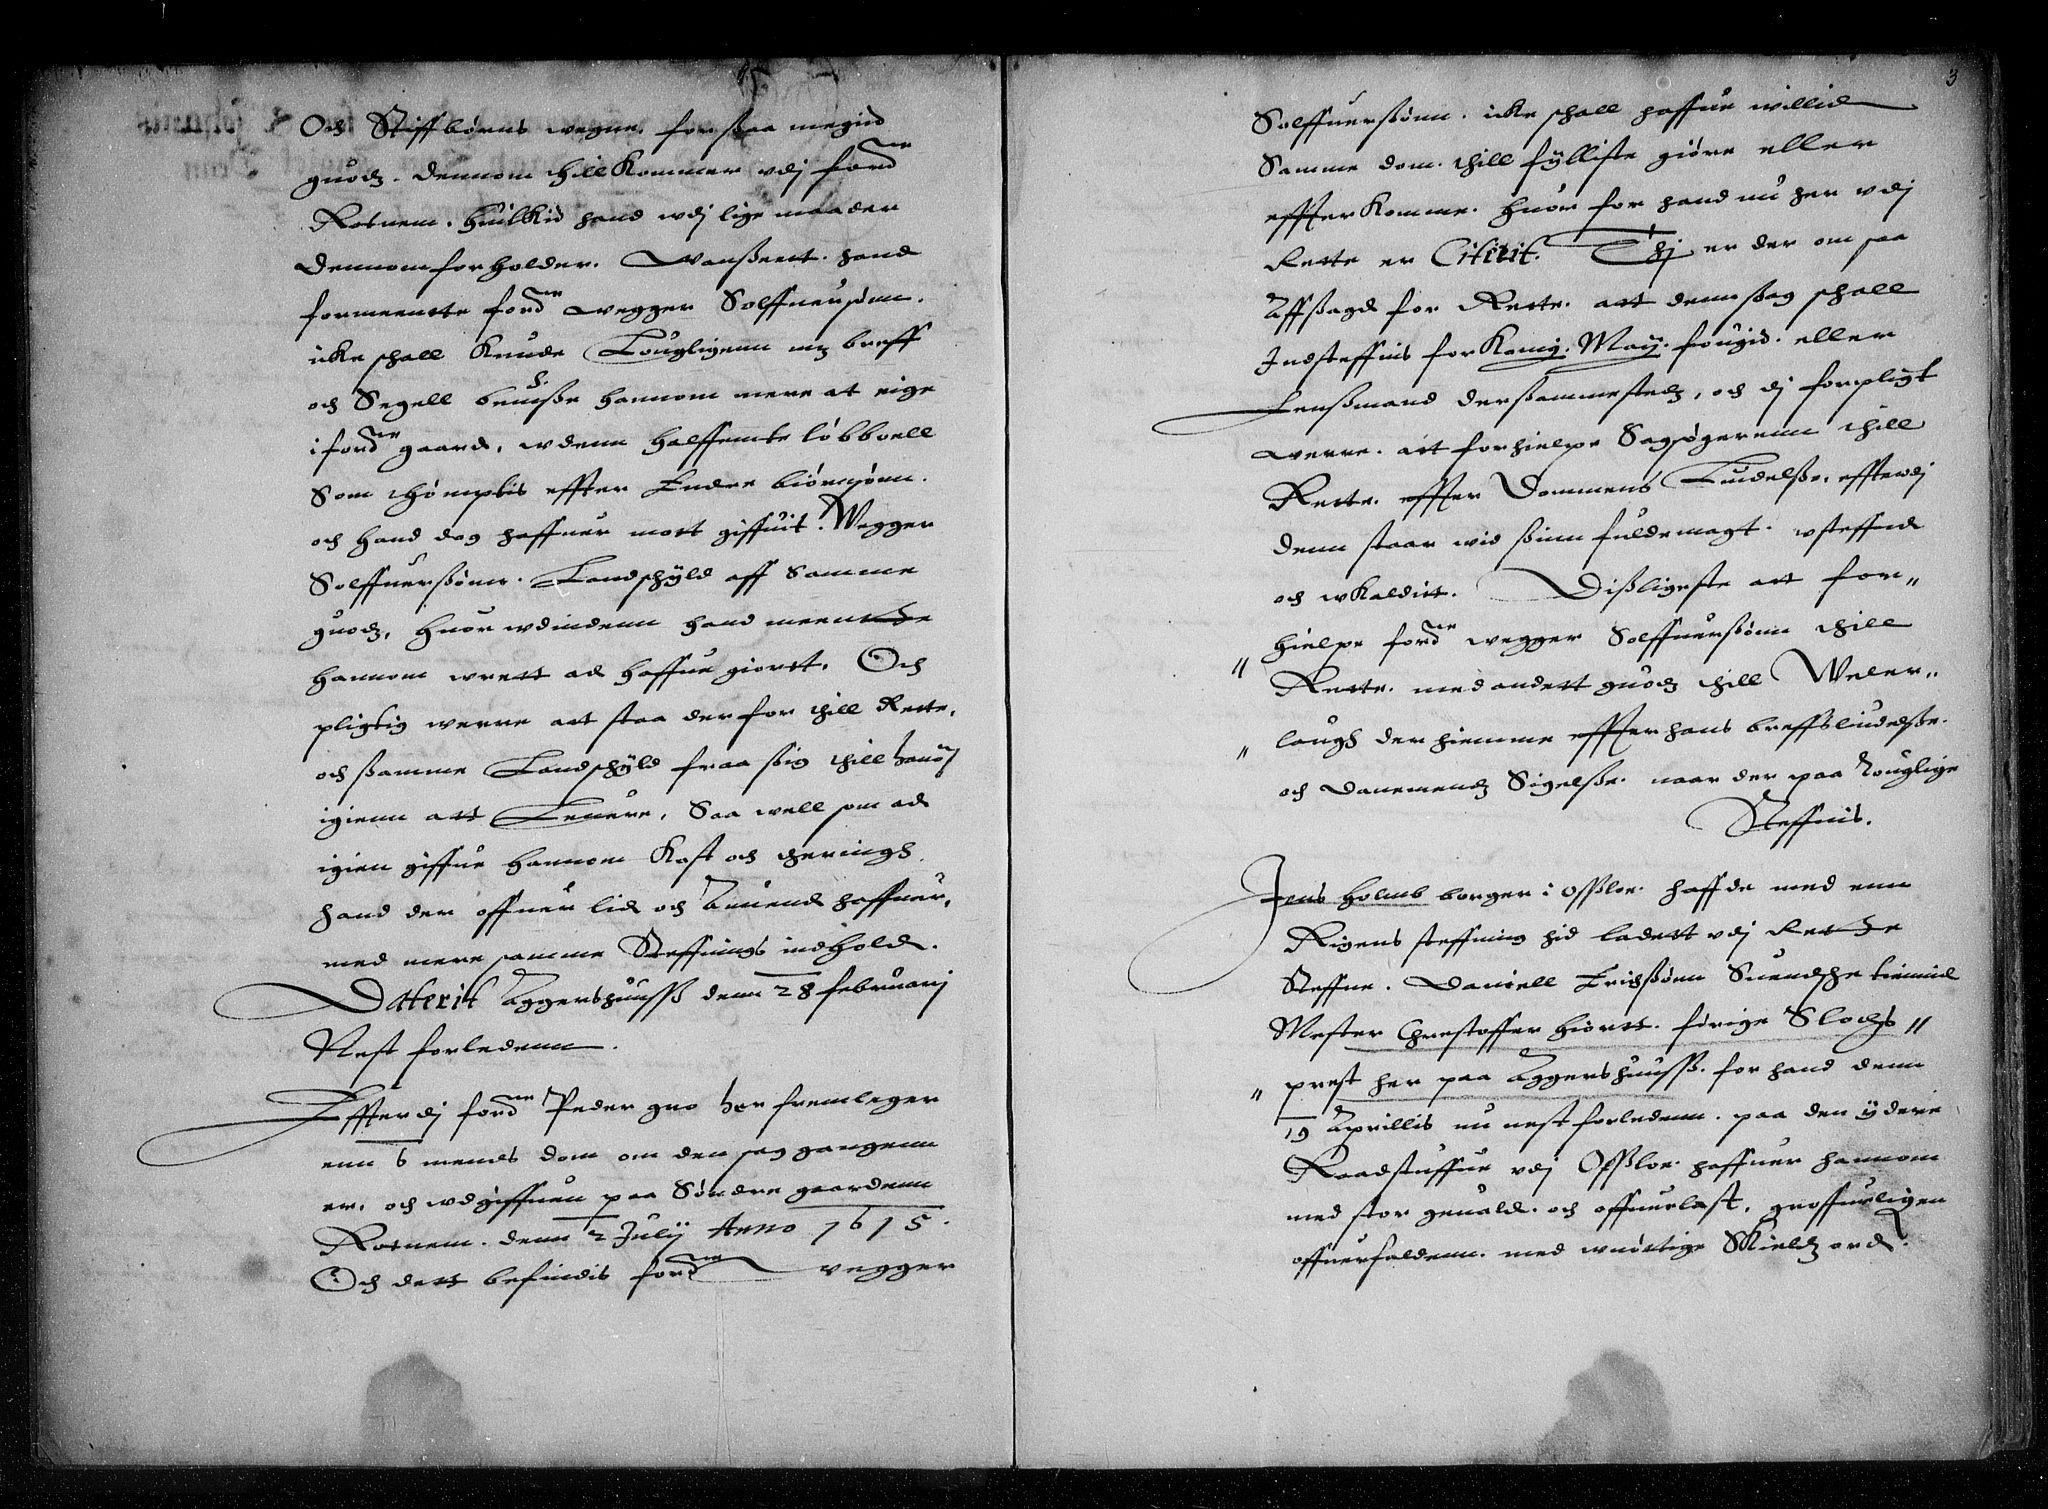 Och Stiffbørns wegne. for saa megid
guodz. dennom thill kommer vdj forne
Rotnem. huilkid hand wdj lige maader
dennom forholder. Wanseett. hand
formeentte forne wegger Solffuersønn.
icke schall kunde Louglig enn mz breff
och Segell beuisse hannom mere at eige
i forne gaard, wdenn halffemte løbboell
Som thømptis effter Endre biørnsønn.
och hand dog haffuer mott giffuit. Wegger
Solffuersønn. Landschyld aff samme
guodz, huor wdindenn hand meentte
hannom wrett ad haffue giortt. Och
pligtig werre att staa der for thill Rette,
och samme Landschyld fraa sig thill
igienn att Leuere, Saa well som ad
igien giffue hannom Kost och theringh
hand der offuer lid och anuend haffuer,
med mere samme Steffnings indhold.
Daterit Aggershuuss denn 28 februarij
Nest forledenn.
Effterdj forne Peder gro her fremleger
enn 6 mends dom om den sag gangenn
er, och wdgiffuen paa Søndre gaardenn
Rotnem. denn 2 Julij Anno 1615.
Och dett befindis forne wegger
3
Solffuersønn. icke schall haffue willid
Samme dom. thill fylliste giøre eller
effterkomme. huor for hand nu her vdj
Rette er Citerit. Thj er der om saa
Affsagd for Rette. att denn sag schall
Indsteffnis for Kong. May. fougid. eller
Lensmand dersammestedz, och dj forpligt
werre. att forhielpe Sagsøgerenn thill
Rette. effter Dommens Liudelse, effterdj
denn staar wid sinn fuldemagt. wsteffnd
och wkaldit. Disligeste att for„
hielpe forne wegger Solffuersønn thill
„ Rette. med andett guodz thill Weder„
„ laugh der hiemme effter hans breffs liudelse.
och Danemendz Sigelse. naar der paa louglige
Steffnis.
Jens Holmb borger i Opsloe. haffde med enn
Rigens steffning hid ladett vdj Rette
Steffne. Daniell Erichsønn Suendsche tienid
Mester Christoffer Hiortt. førige Slodz„
„ prest her paa Aggershuuss. for hand denn
19 Aprillis nu nest forledenn. paa den ydere
Raadstuffue vdj Opsloe. haffuer hannom
med stor geuald. och offuerlast, groffueligen
offuerfaldenn. med wnøttige Skieldz ord.